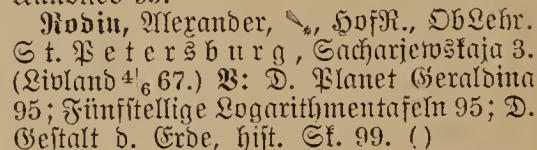 Rodin, Alexander, HofR., ObLehr.
St. Petersburg, Sacharjewskaja 3.
(Livland 4/6 67.) V: D. Planet Geraldina
95; Fünfstellige Logarithmentafeln 95; D.
Gestalt d. Erde, hist. Sk. 99. ()